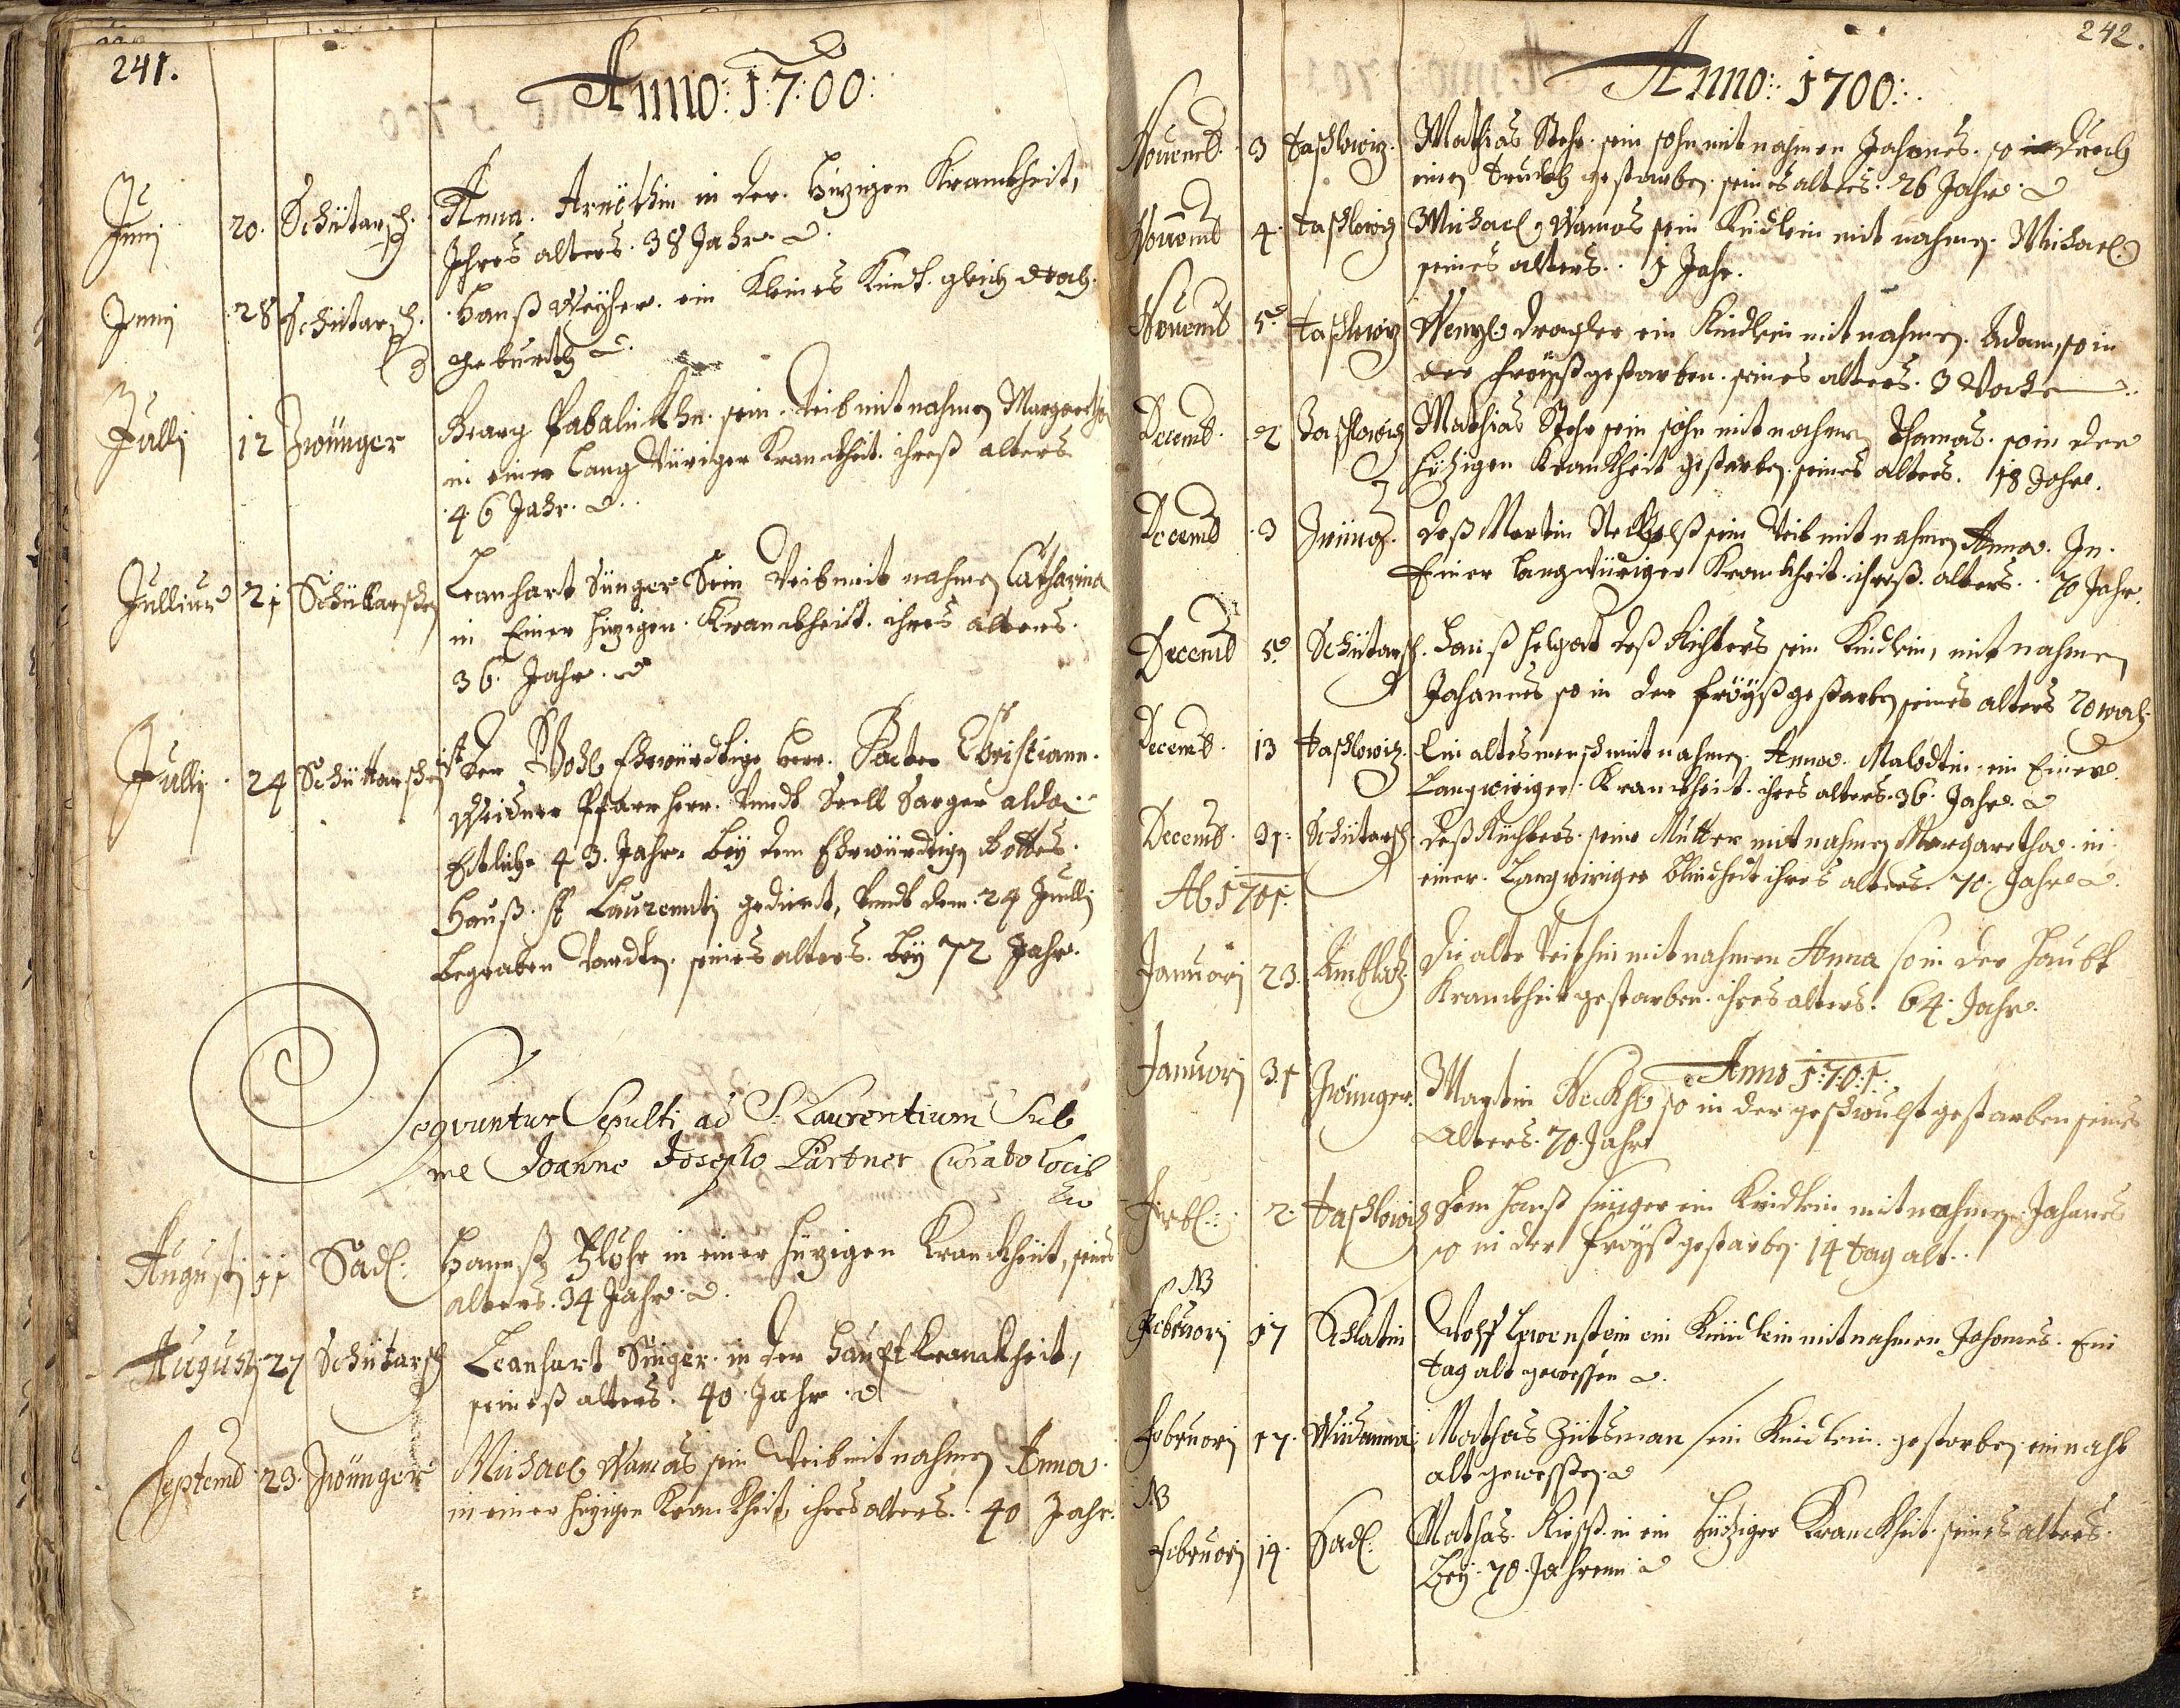 241.
Anno: 1700:
Junij 20. Schütarsch. Anna. Arnöthin in der. Hizigen Kranckheit,
Ihres alters. 38 Jahr.
Junij 28 Schütarsch. Hanß Weÿher. ein Kleines Kindt. gleich nach.
geburth
Julij 12 Zwünger Georg sein. Weib mit nahmen Margaretha
in einer lang Würiger Kranckheit. ihreß alters
46 Jahr.
Jullius 21 Schüttarschen Leonhart Sünger Sein Weib mit nahmen Catharina
in Einer hizigen. Kranckheit. ihres alters.
36. Jahr.
Julij. 24 Schüttarschen ist der Wohl Ehrwürdtige Herr. Pater Christiann.
Weidner Pfarrherr. Vundt Seell Sorger alda
Ettliche 43. Jahr. beÿ dem Ehrwürdtigen Gottes.
Hauß. St Laurenntij gedient, Vundt dem. 24 Jullij
begraben worden. seines alters. beÿ 72 Jahr.
Sequuntur Sepulti ad S. Laurentium Sub
me Joanne Josepho Partner Curato loci
Augusti 11 Sadl: Hannß Flöhr in einer hizigen Kranckheit, seines
alters. 34 Jahr.
Augusti 27 Schütarsch Leonhart Singer. in der Haupt Kranckheit,
seineß alters. 40. Jahr.
Septemb 23. Zwünger Michael Wamas sein Weib mit nahmen Anna.
in einer hizigen Kranckheit, ihres alters. 40 Jahr.
242.
Anno: 1700:
Novemb. 3 Taschlowiz. Mathias Stehr. sein sohn mit nahmen Johanes. so durch
einen gestorben. seines alters. 26 Jahr.
Novemb 4. Taschlowiz Michael Wamas sein Kindlein mit nahmen. Michael.
seines alters. 1 Jahr.
Novemb 5. Taschlowiz Wenzl ein Kindlein mit nahmen. Adam, so in
der fröÿß gestorben. seines alters. 3 Woche
Decemb. 2 Taschlowiz Mathias Stehr sein sohn mit nahmen Thomas. so in der
hizigen Kranckheit gestorben. seines alters. 18 Jahr.
Decemb 3 Zwüng. deß Martin sein Weib mit nahmen Anna. In.
Einer langwüriger Kranckheit. ihreß. alters. 70 Jahr.
Decemb 5. Schütarsch. Hanß deß Richters sein Kindlein, mit nahmen
Johannes so in der fröÿß gestorben seines alters 20 woch
Decemb. 13 Taschlowiz. Ein altes mensch mit nahmen. Anna. Malodtin, in Einer
Langwiriger. Kranckheit. ihres alters. 36. Jahr.
Decemb. 31. Schütarsch. deß Richters. seine Mutter mit nahmen Margaretha. in
einer. Langwiriger blindheit ihres alters. 70. Jahr.
A. 1701.
Januarj 23. die alte mit nahmen Anna so in der Haubt
Kranckheit gestorben. ihres alters. 64. Jahr.
Anno 1701.
Januarj 31 Zwünger. Martin so in der geschwulst gestorben seines
Alters. 70. Jahr
Febl: 2. Taschlowiz dem Hanß Singer ein Kindlein mit nahmen. Johanes
so in der fröÿß gestorben. 14 tag alt.
NB
Februarj 17 Schlatin Wolff Lewenstein ein Kindlein mit nahmen Johannes. Ein
tag alt gewessen
Februarj 17. Mathas Zütsman sein Kindlein. gestorben. ein nacht
alt gewessen.
NB
Februarj 14. Sadl. Mathas. Rieß. in ein Hitziger Kranckheit. seines alters.
Beÿ. 70. Jahrenn